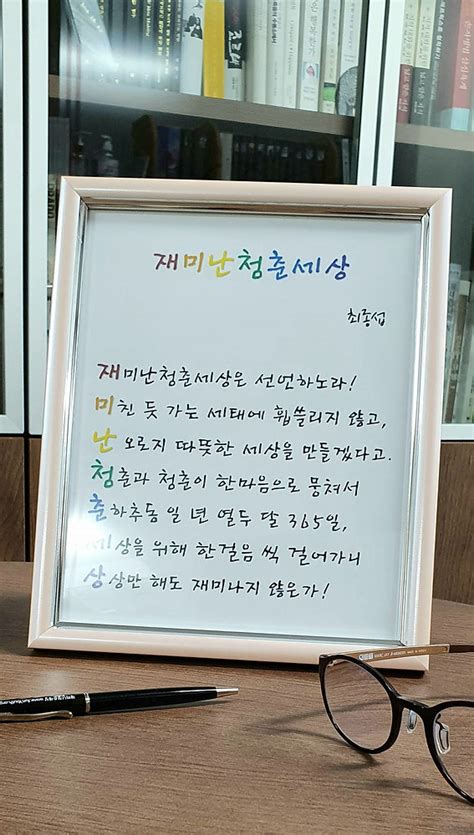 재미난청춘세상
최종섭
재미난청춘세상은 선언하노라!
미친 듯 가는 세태에 휩쓸리지 않고,
난 오로지 따뜻한 세상을 만들겠다고.
청춘과 청춘이 한마음으로 뭉쳐서
춘하추동 일 년 열두 달 365일,
세상을 위해 한걸음 씩 걸어가니
상상만 해도 재미나지 않은가!